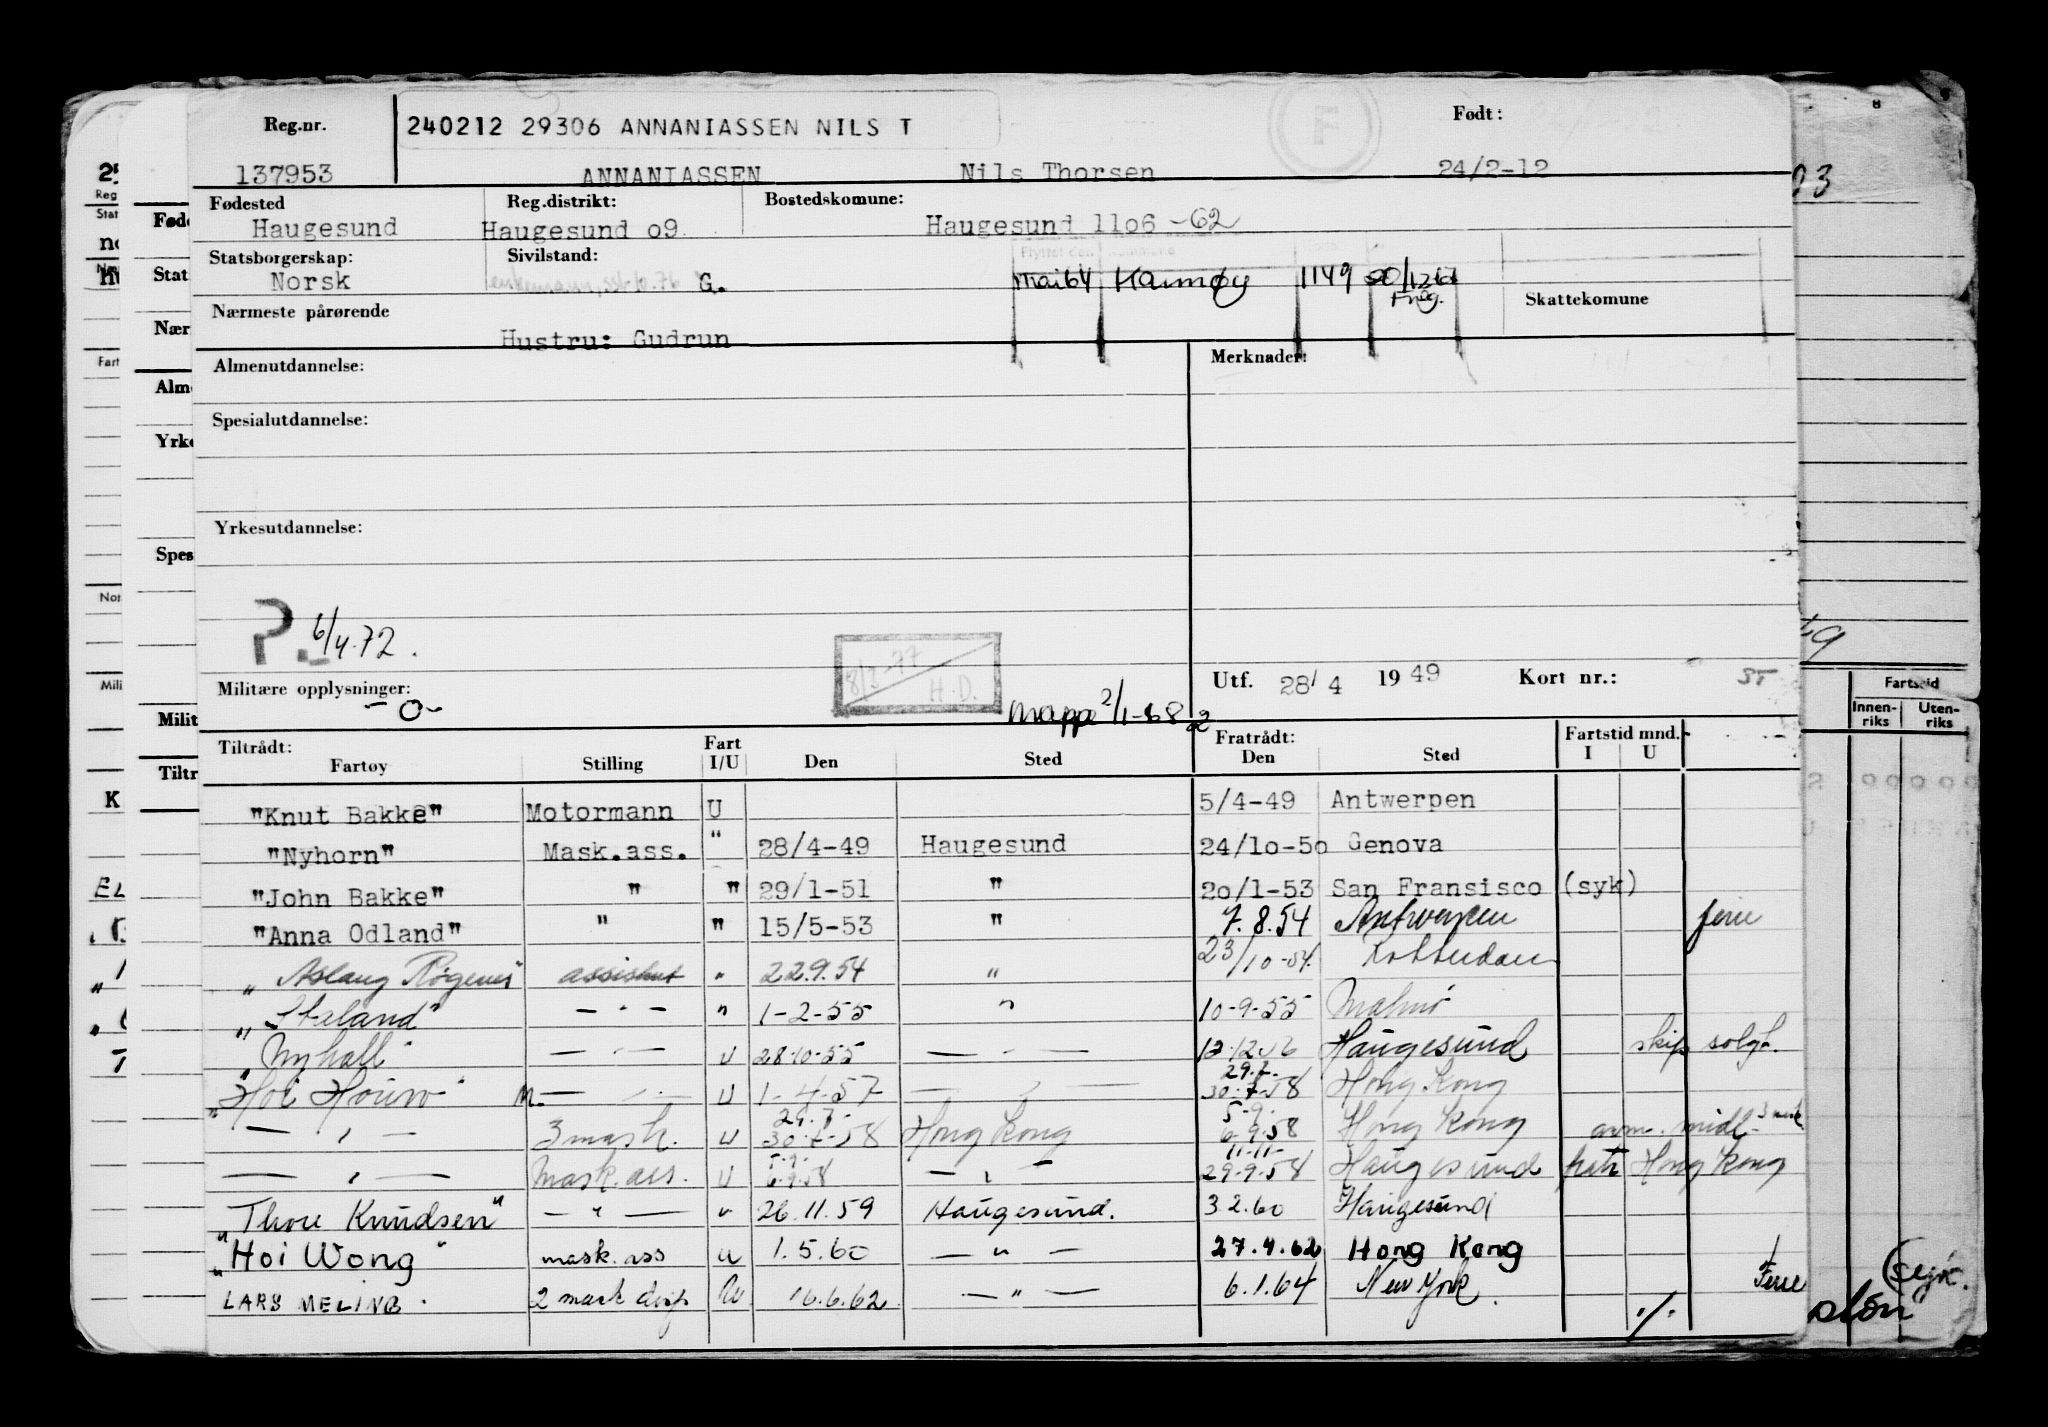 Reg.nr. 240212 29306 ANNANIASSEN NILS T Født:
137953 ANNANIASSEN Nils Thorsen 24/2-12
Fødested Reg.distrikt: Bostedskomune:
Haugesund Haugesund o9 Haugesund 11o6 -62
Statsborgerskap: Sivilstand:
Norsk G. Mai 64 Karmøy 1149
Nærmeste pårørende Skattekomune
Hustru: Gudrun
Almenutdannelse: Merknader:
Spesialutdannelse:
Yrkesutdannelse:
P. 6/4.72.
8/3-77
H.D.
Utf. 28/4 1949 Kort nr.:
Militære opplysninger:
-0- Mappe 2/1-68
Tiltrådt: Fart Fratrådt: Fartstid mnd.
Fartøy Stilling I/U Den Sted Den Sted I U
"Knut Bakke" Motormann U 5/4-49 Antwerpen
"Nyhorn" Mask.ass. " 28/4-49 Haugesund 24/1o-5o Genova
"John Bakke" " " 29/1-51 " 2o/1-53 San Fransisco (syk)
"Anna Odland" " " 15/5-53 " 7.8.54 Antwerpen ferie
"Aslaug Røgenes" assistent " 22.9.54 " 23/10-54. Rotterdam
"Staland" - " - " 1-2-55 " 10-9-55 Malmø
"Nyhall" - " - U 28-10-55 - " - Haugesund skip solgt.
29.7-
"Hoi Houw" M. - " - U 1-4-57 - " - 30-7-58 Hong Kong
29.7- 5-9-
- " - 3 mask. U 30-7-58 Hong Kong 6-9-58 Hong Kong avm. midl. 3 mask
5-9- 11-11-
- " - Mask.ass. U 6-9-58 - " - 29-9-58 Haugesund Hong Kong
"Thore Knudsen" - " - " 26.11.59 Haugesund. 3.2.60 Haugesund
"Hoi Wong" mask.ass u 1.5.60 - " - 27.4.62 Hong Kong
LARS MELING. 2 mask U 16.6.62 - " - 6.1.64 New York. Ferie
./.
Fartstid
Innen-riks Uten-riks